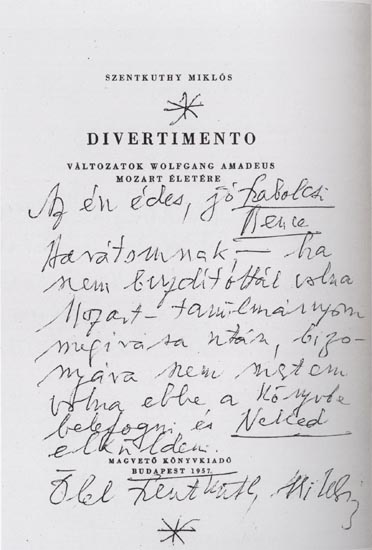 SZENTKUTHY MIKLÓS
DIVERTIMENTO
VÁLTOZATOK WOLFGANG AMADEUS
MOZART ÉLETÉRE
Az én édes, jó Szabolcsi
Bence
Barátomnak, – ha
nem buzdítottál volna
Mozart-tanulmányom
megírása után, bizo-
nyára nem mertem
volna ebbe a könyvbe
belefogni és Neked
elküldeni.
MAGVETŐ KÖNYVKIADÓ
BUDAPEST 1957.
Ölel Szentkuthy Miklós